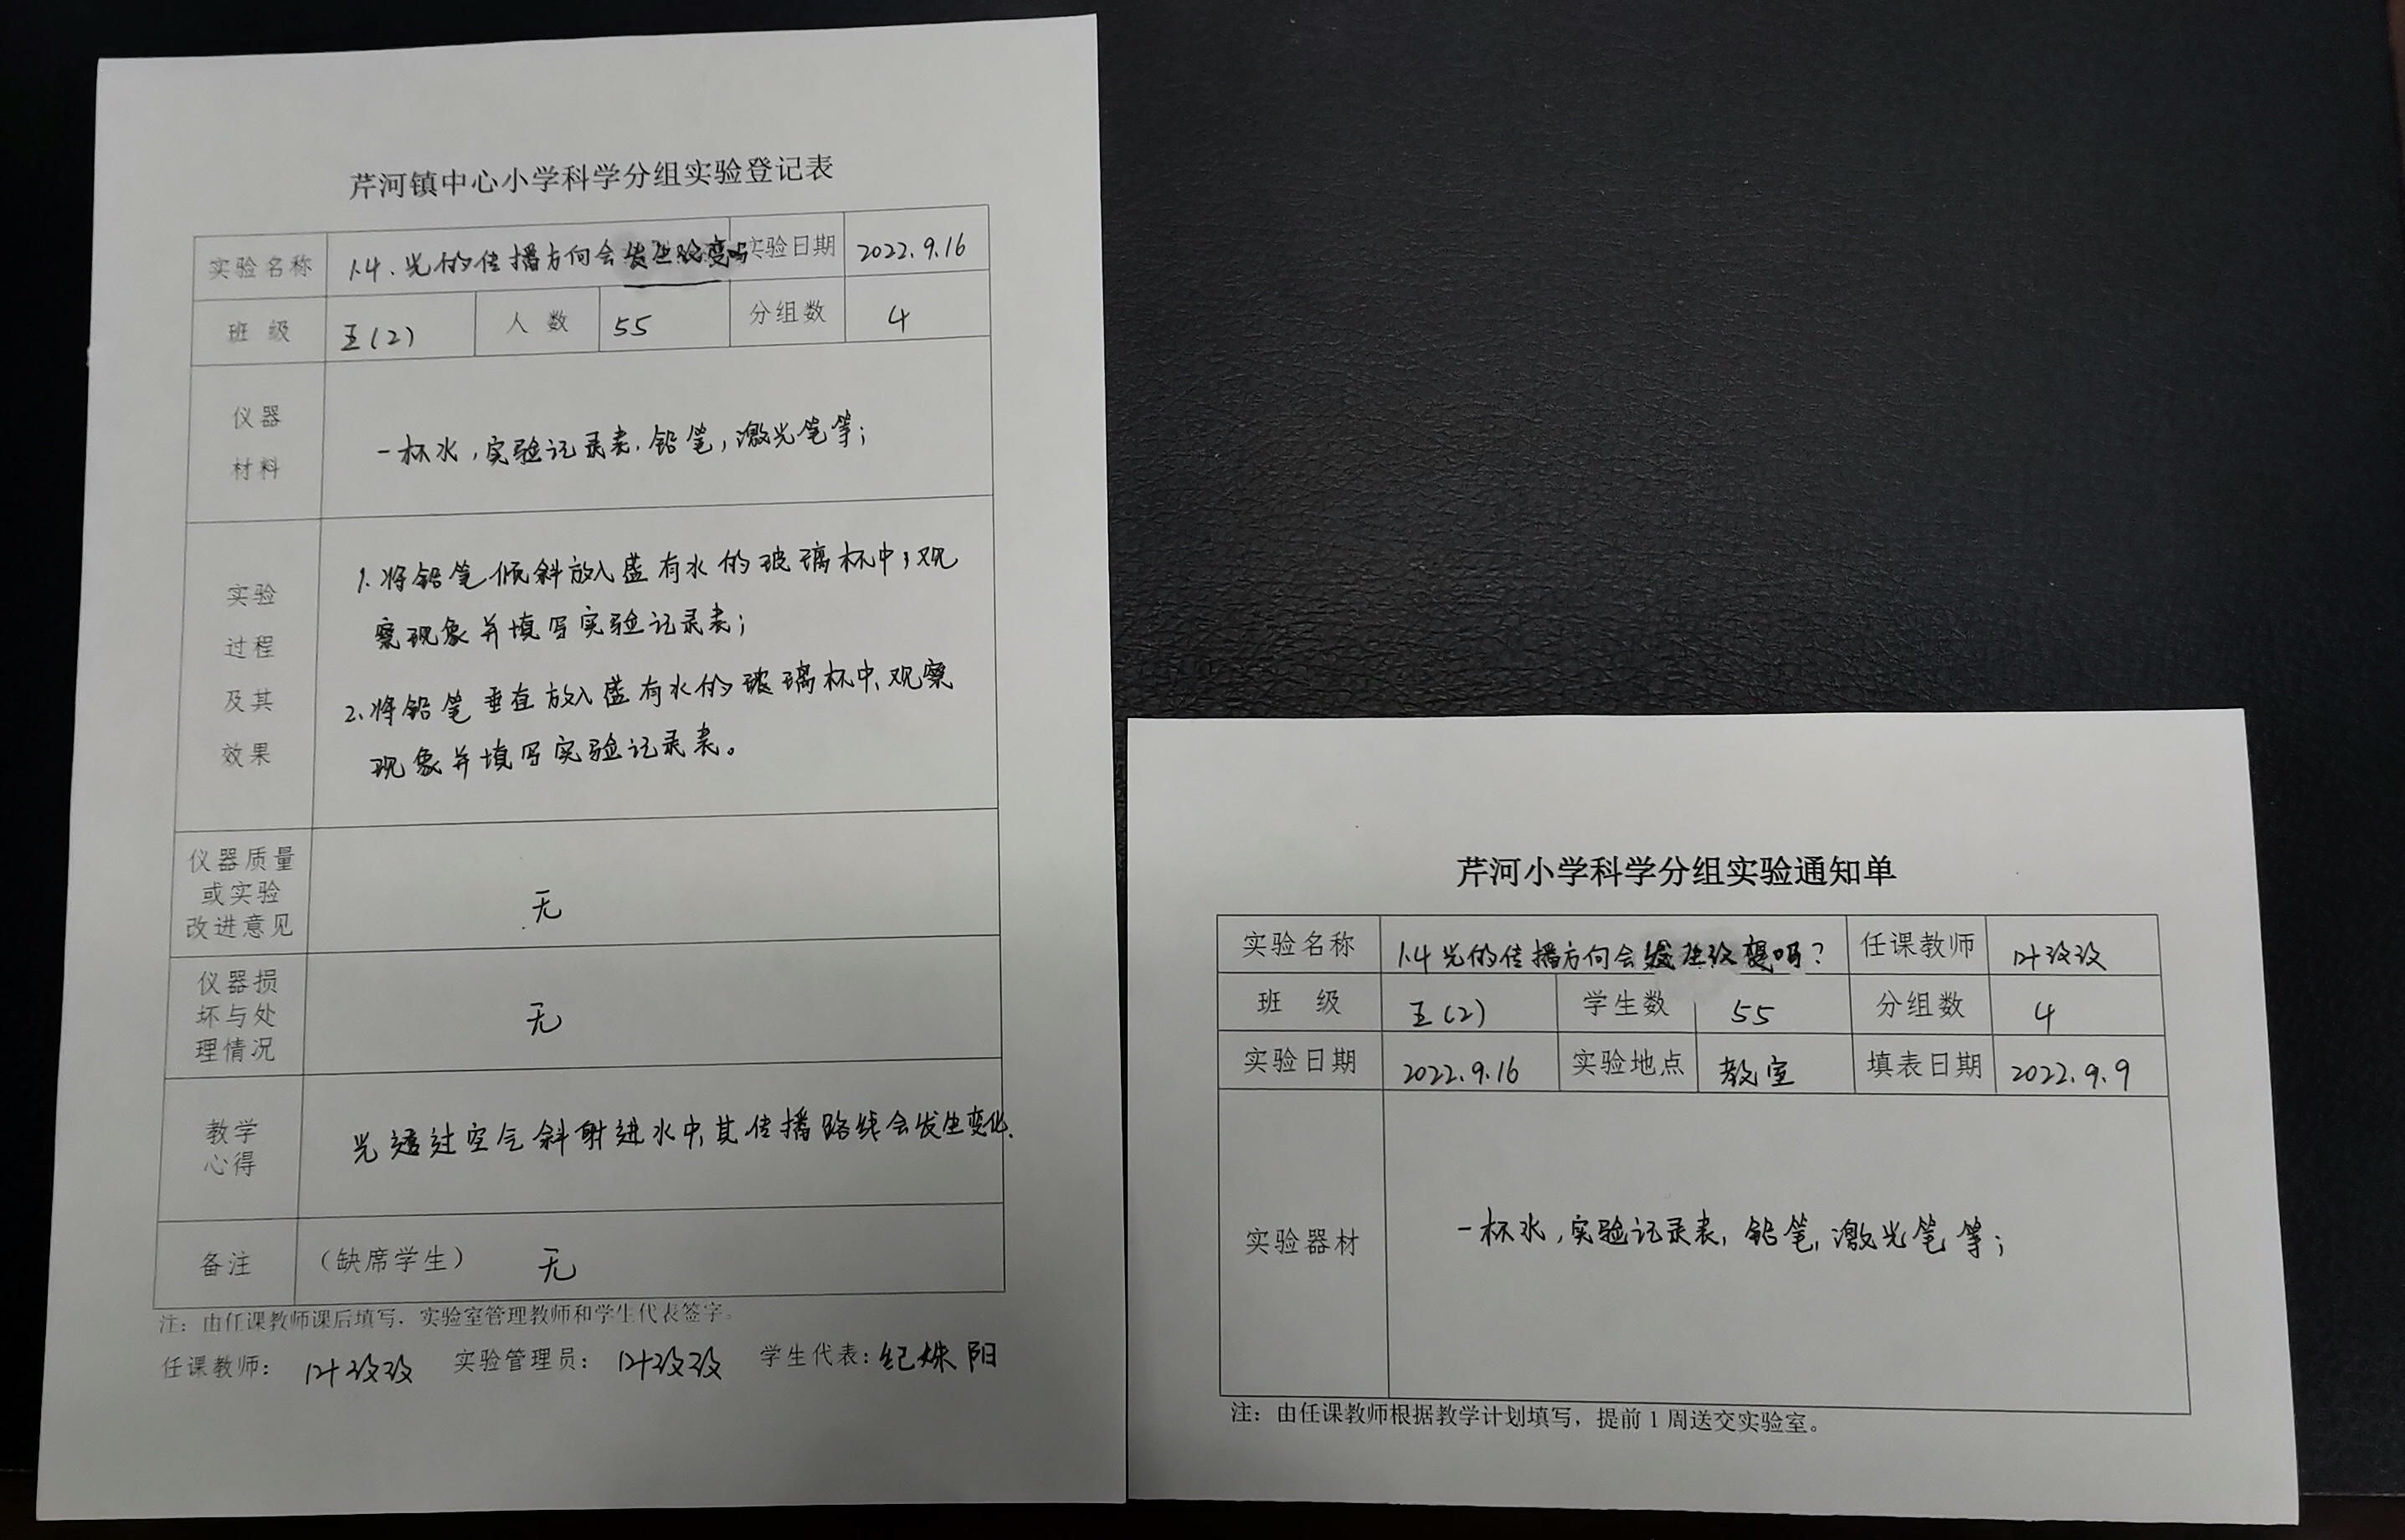 芹河镇中心小学科学分组实验登记表
实验名称 1.4.光的传播方向会发生改变吗 实验日期 2022.9.16
班 级 五(2) 人 数 55 分组数 4
仪器
材料
一杯水,实验记录表.铅笔,激光笔等;
实验
过程
及其
效果
1.将铅笔倾斜放入盛有水的玻璃杯中,观
察现象并填写实验记录表;
2.将铅笔垂直放入盛有水的玻璃杯中,观察
现象并填写实验记录表。
仪器质量
或实验
改进意见
无
仪器损
坏与处
理情况
无
教学
心得
光透过空气斜射进水中,其传播路线会发生变化.
备注 (缺席学生) 无
注:由任课教师课后填写,实验室管理教师和学生代表签字。
任课教师: 叶玟玟 实验管理员: 叶玟玟 学生代表: 纪姝阳
芹河小学科学分组实验通知单
实验名称 1.4光的传播方向会发生改变吗? 任课教师 叶玟玟
班 级 五(2) 学生数 55 分组数 4
实验日期 2022.9.16 实验地点 教室 填表日期 2022.9.9
实验器材 一杯水,实验记录表,铅笔,激光笔等;
注:由任课教师根据教学计划填写,提前1周送交实验室。